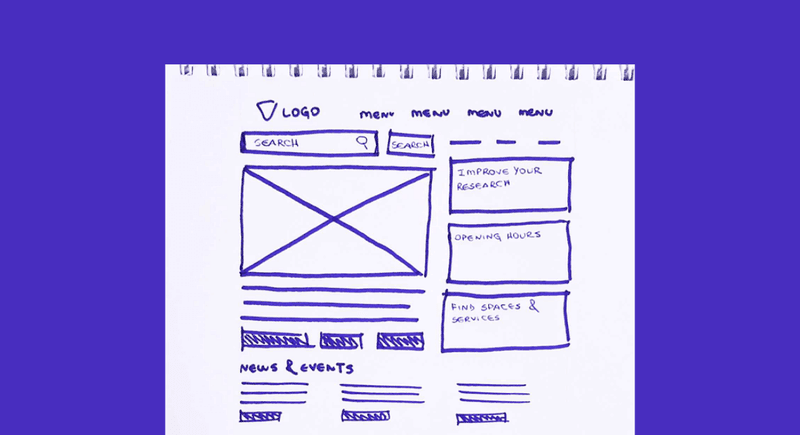 LOGO
MENU MENU MENU MENU
SEARCH
SEARCH
IMPROVE YOUR
RESEARCH
OPENING HOURS
FIND SPACES &
SERVICES
NEWS & EVENTS